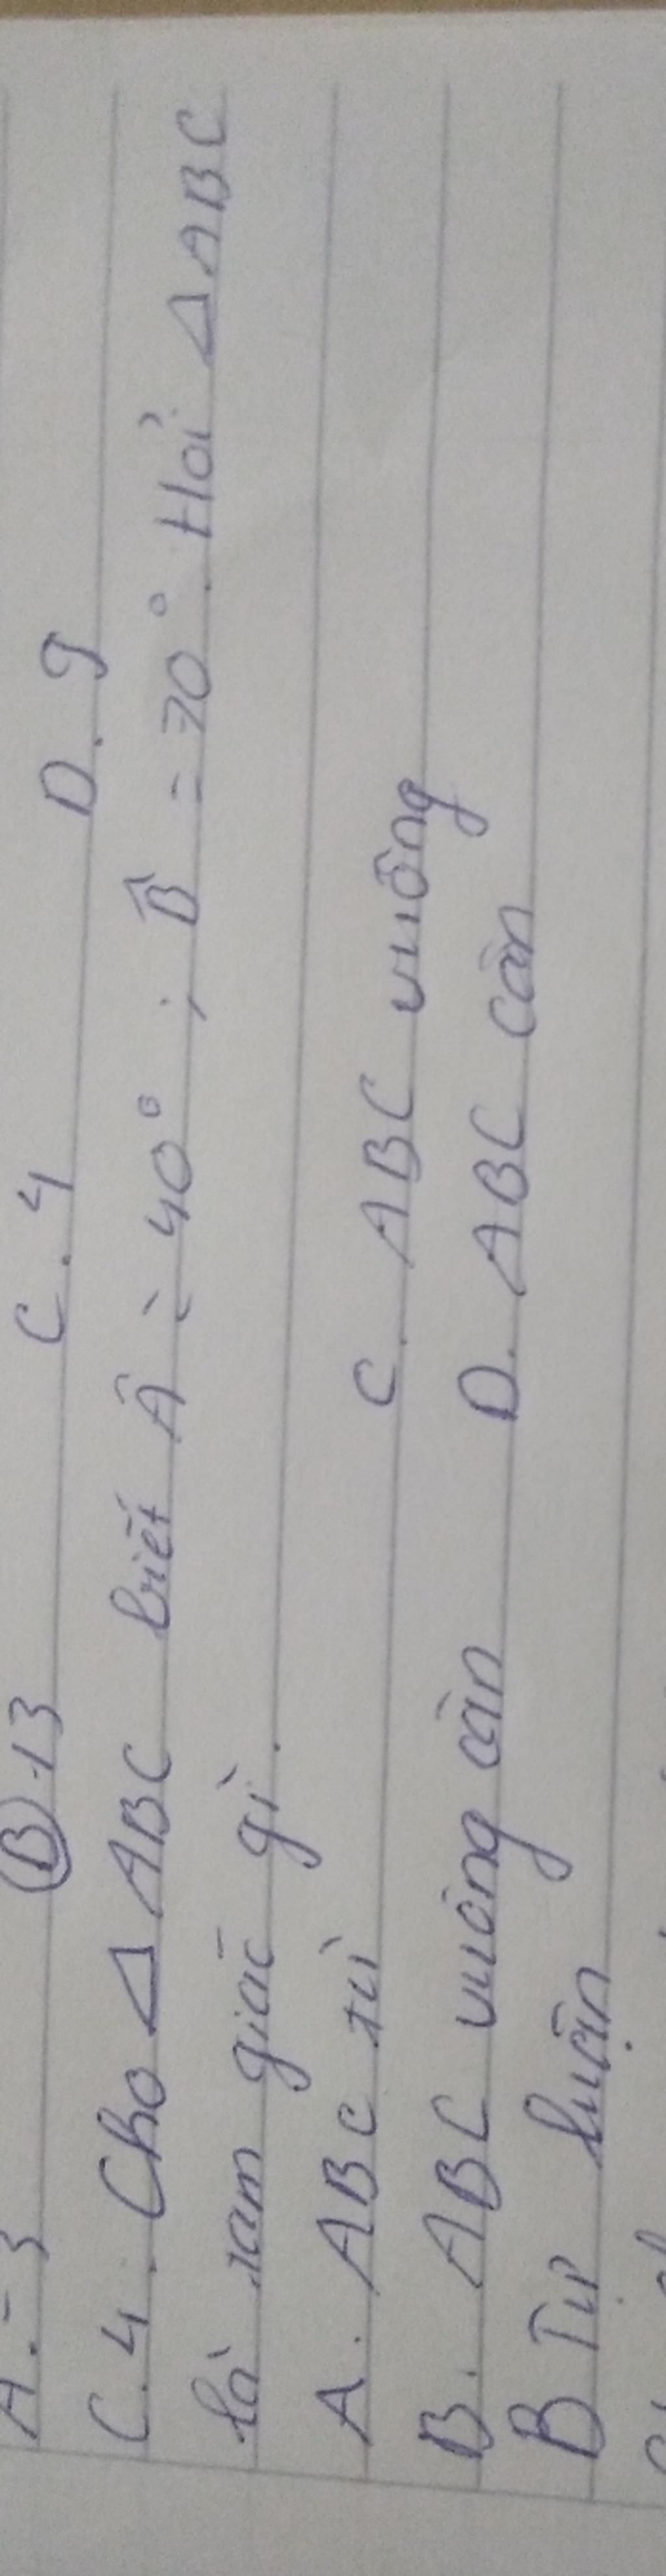 A. -3 B. 13 C. 4 D. 9
C.4. Cho Δ ABC biết Â = 40°; B̂ = 70°. Hỏi Δ ABC
là tam giác gì.
A. ABC tù C. ABC vuông
B. ABC vuông cân D. ABC cân
B Tự luận